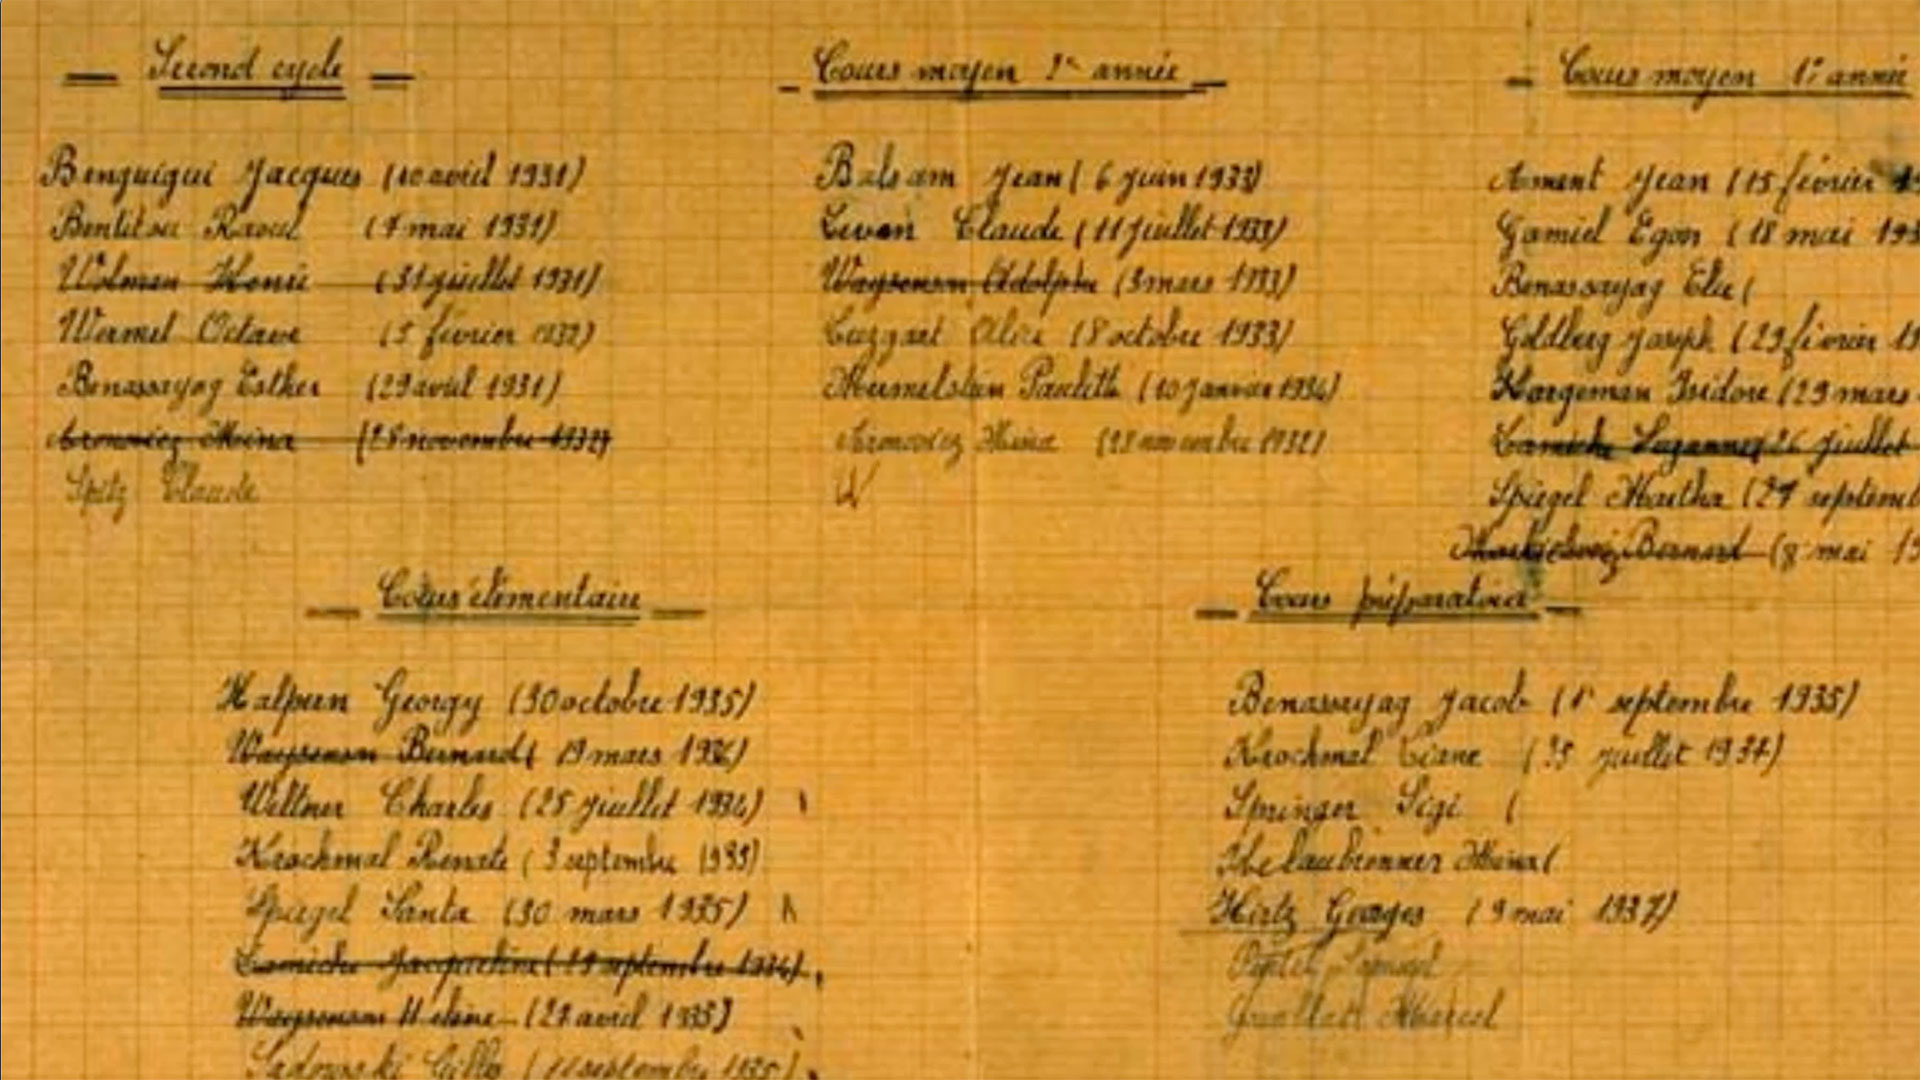 Second cycle
Benguigui Jacques (10 avril 1931)
Bentitou Raoul (7 mai 1931)
Wolman Henri (31 juillet 1931)
Wermet Octave (5 février 1932)
Benassayag Esther (29 avril 1931)
Aronowicz Mina (28 novembre 1932)
Spitz Claude
Cours moyen 2e année
Balsam Jean (6 juin 1933)
Levan Claude (11 juillet 1933)
Waysenson Adolphe (3 mars 1933)
(8 octobre 1933)
Mermelstein Paulette (10 janvier 1934)
Aronovicz Mina (28 novembre 1932)
W
Cours moyen 1e année
Ament Jean (15 février
Gamiel Egon (18 mai 193
Benassayag Elie (
Goldberg Joseph (29 février 19
Kargeman Isidore (29 mars
Suzanne (26 juillet
Spiegel Martha (27 septemb
Bernard (8 mai 19
Cours élémentaire
Halpern Georgy (30 octobre 1935)
Waysenson Bernard ( 19 mars 1936)
Weltner Charles (25 juillet 1934)
Krochmal Renate ( 3 septembre 1935)
Spiegel Santa (30 mars 1935)
Jacqueline (29 septembre 1934)
Waysenson Hélène (27 avril 1935)
Sadowski Gilles (11 septembre 1935)
Cours préparatoire
Benassayag Jacob (1r septembre 1935)
Krochmal Liane ( 25 juillet 1937)
Springer Sigi (
Mina (
Hirtz Georges (9 mai 1937)
Marcel